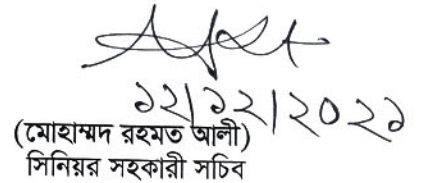 ১২/১২/২০২১
(মোহাম্মদ রহমত আলী)
সিনিয়র সহকারী সচিব